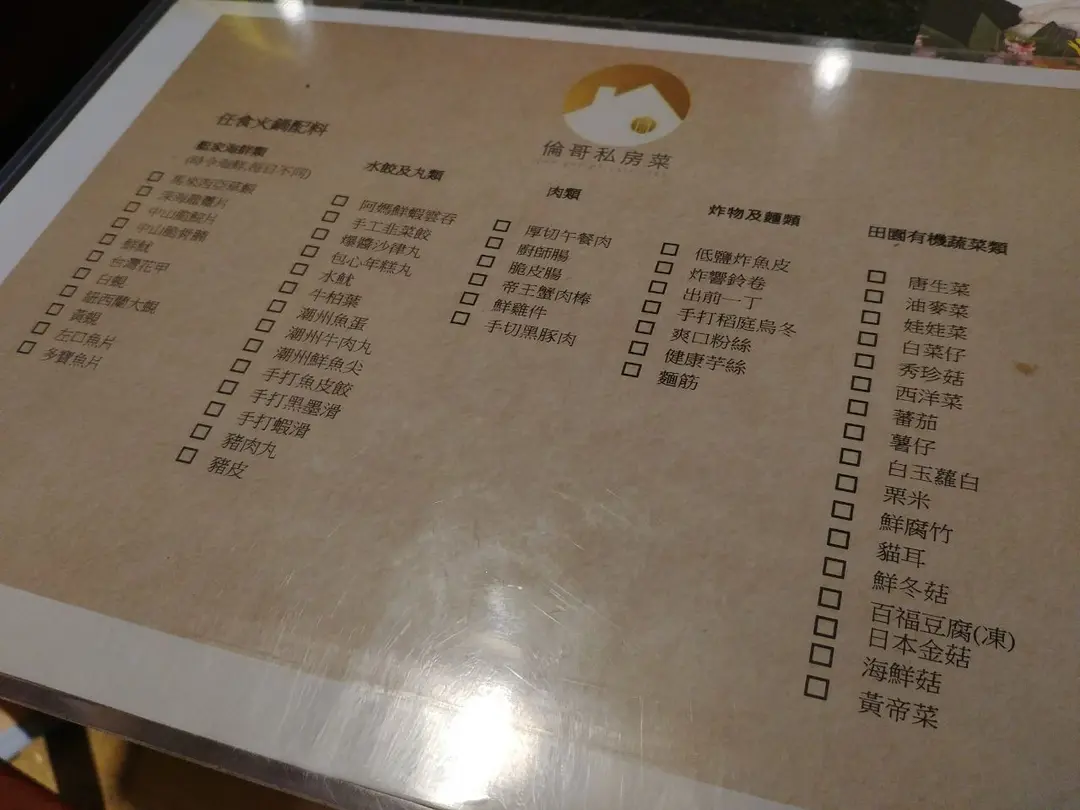 任食火鍋配料
倫哥私房菜
龍家海鮮類
(時令海鮮,每日不同)
馬來西亞草蝦
深海龍躉片
中山脆鯇片
中山脆骨腩
鮮魷
台灣花甲
白蜆
紐西蘭大蜆
黃蜆
左口魚片
多寶魚片
水餃及丸類
阿媽鮮蝦雲吞
手工韭菜餃
爆醬沙律丸
包心年糕丸
水魷
牛柏葉
潮州魚蛋
潮州牛肉丸
潮州鮮魚尖
手打魚皮餃
手打黑墨滑
手打蝦滑
豬肉丸
豬皮
肉類
厚切午餐肉
廚師腸
脆皮腸
帝王蟹肉棒
鮮雞件
手切黑豚肉
炸物及麵類
低鹽炸魚皮
炸響鈴卷
出前一丁
手打稻庭烏冬
爽口粉絲
健康芋絲
麵筋
田園有機蔬菜類
唐生菜
油麥菜
娃娃菜
白菜仔
秀珍菇
西洋菜
蕃茄
薯仔
白玉蘿白
栗米
鮮腐竹
貓耳
鮮冬菇
百福豆腐(凍)
日本金菇
海鮮菇
黃帝菜